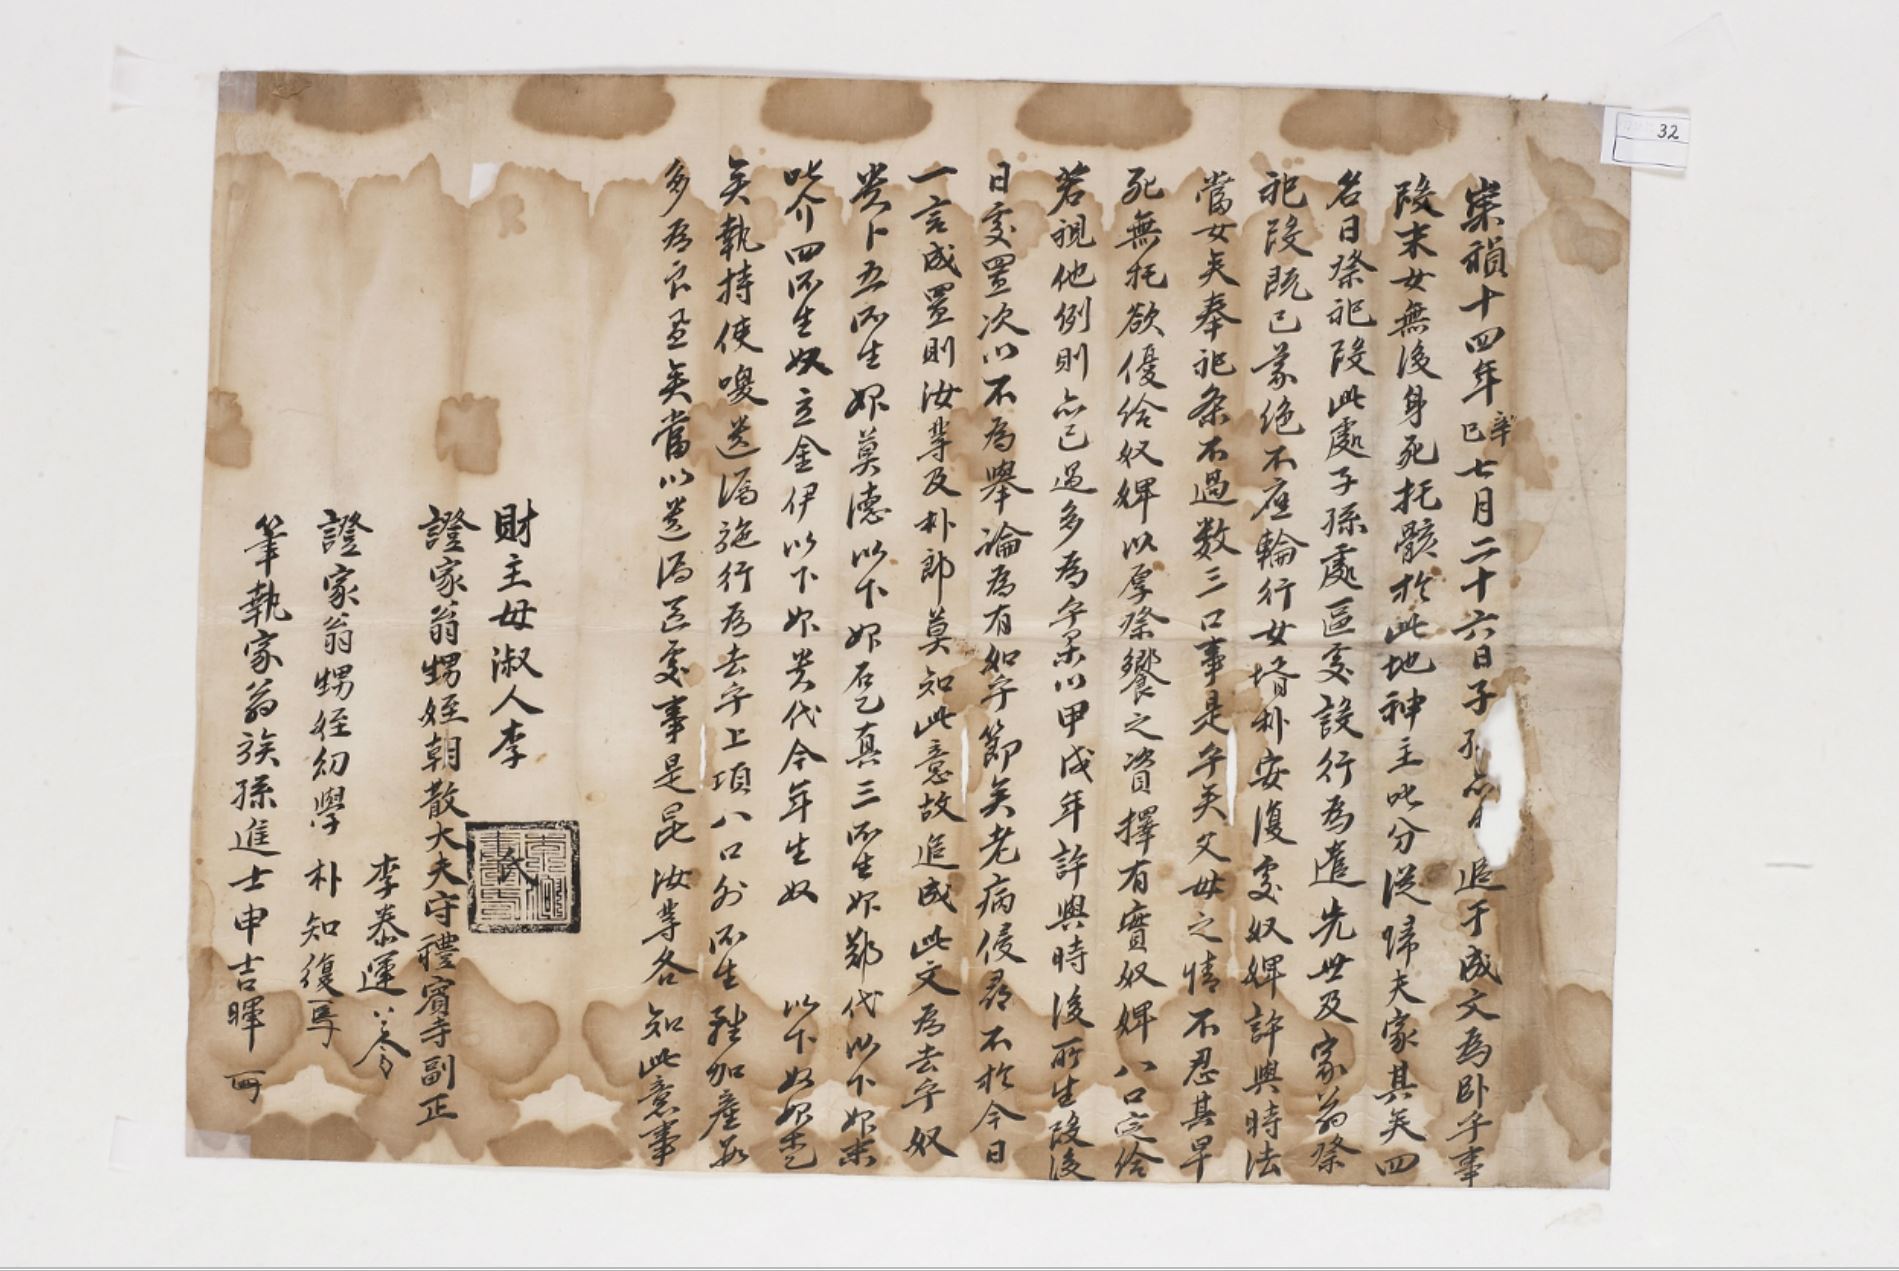 崇禎十四年辛巳七月二十六日子孫亦日追于成文爲臥乎事
段末女無後身死托骸於此地神主叱分從歸夫家其矣四
名日祭祀段此處子孫處區處設行爲遣先世及家翁祭
祀段旣已蒙絶不應輪行女壻朴安復處奴婢許與時法
當女矣奉祀条不過数三口事是乎矣父母之情不忍其早
死無托欲優給奴婢以厚祭饗之資擇有實奴婢八口定給
若視他例則亦已過多爲乎等以甲戌年許與時後所生段後
日處置次以不爲擧論爲有如乎節矣老病侵尋不於今日
一言成置則汝等及朴郎莫知此意故追成此文爲去乎奴
貴卜五所生婢莫德以下婢石乙眞三所生婢鄭代以下婢末
叱介四所生奴立金伊以下婢貴代今年生奴 以下奴婢乙
矣執持使喚遺漏施行爲去乎上項八口外所生雖加產
多爲良置矣當以遺漏區處事是昆汝等各知此意事
財主母淑人李
證家翁甥姪朝散大夫守禮賓寺副正
李泰運
證家翁甥姪幼學朴知復
筆執家翁族孫進士申吉暉
32